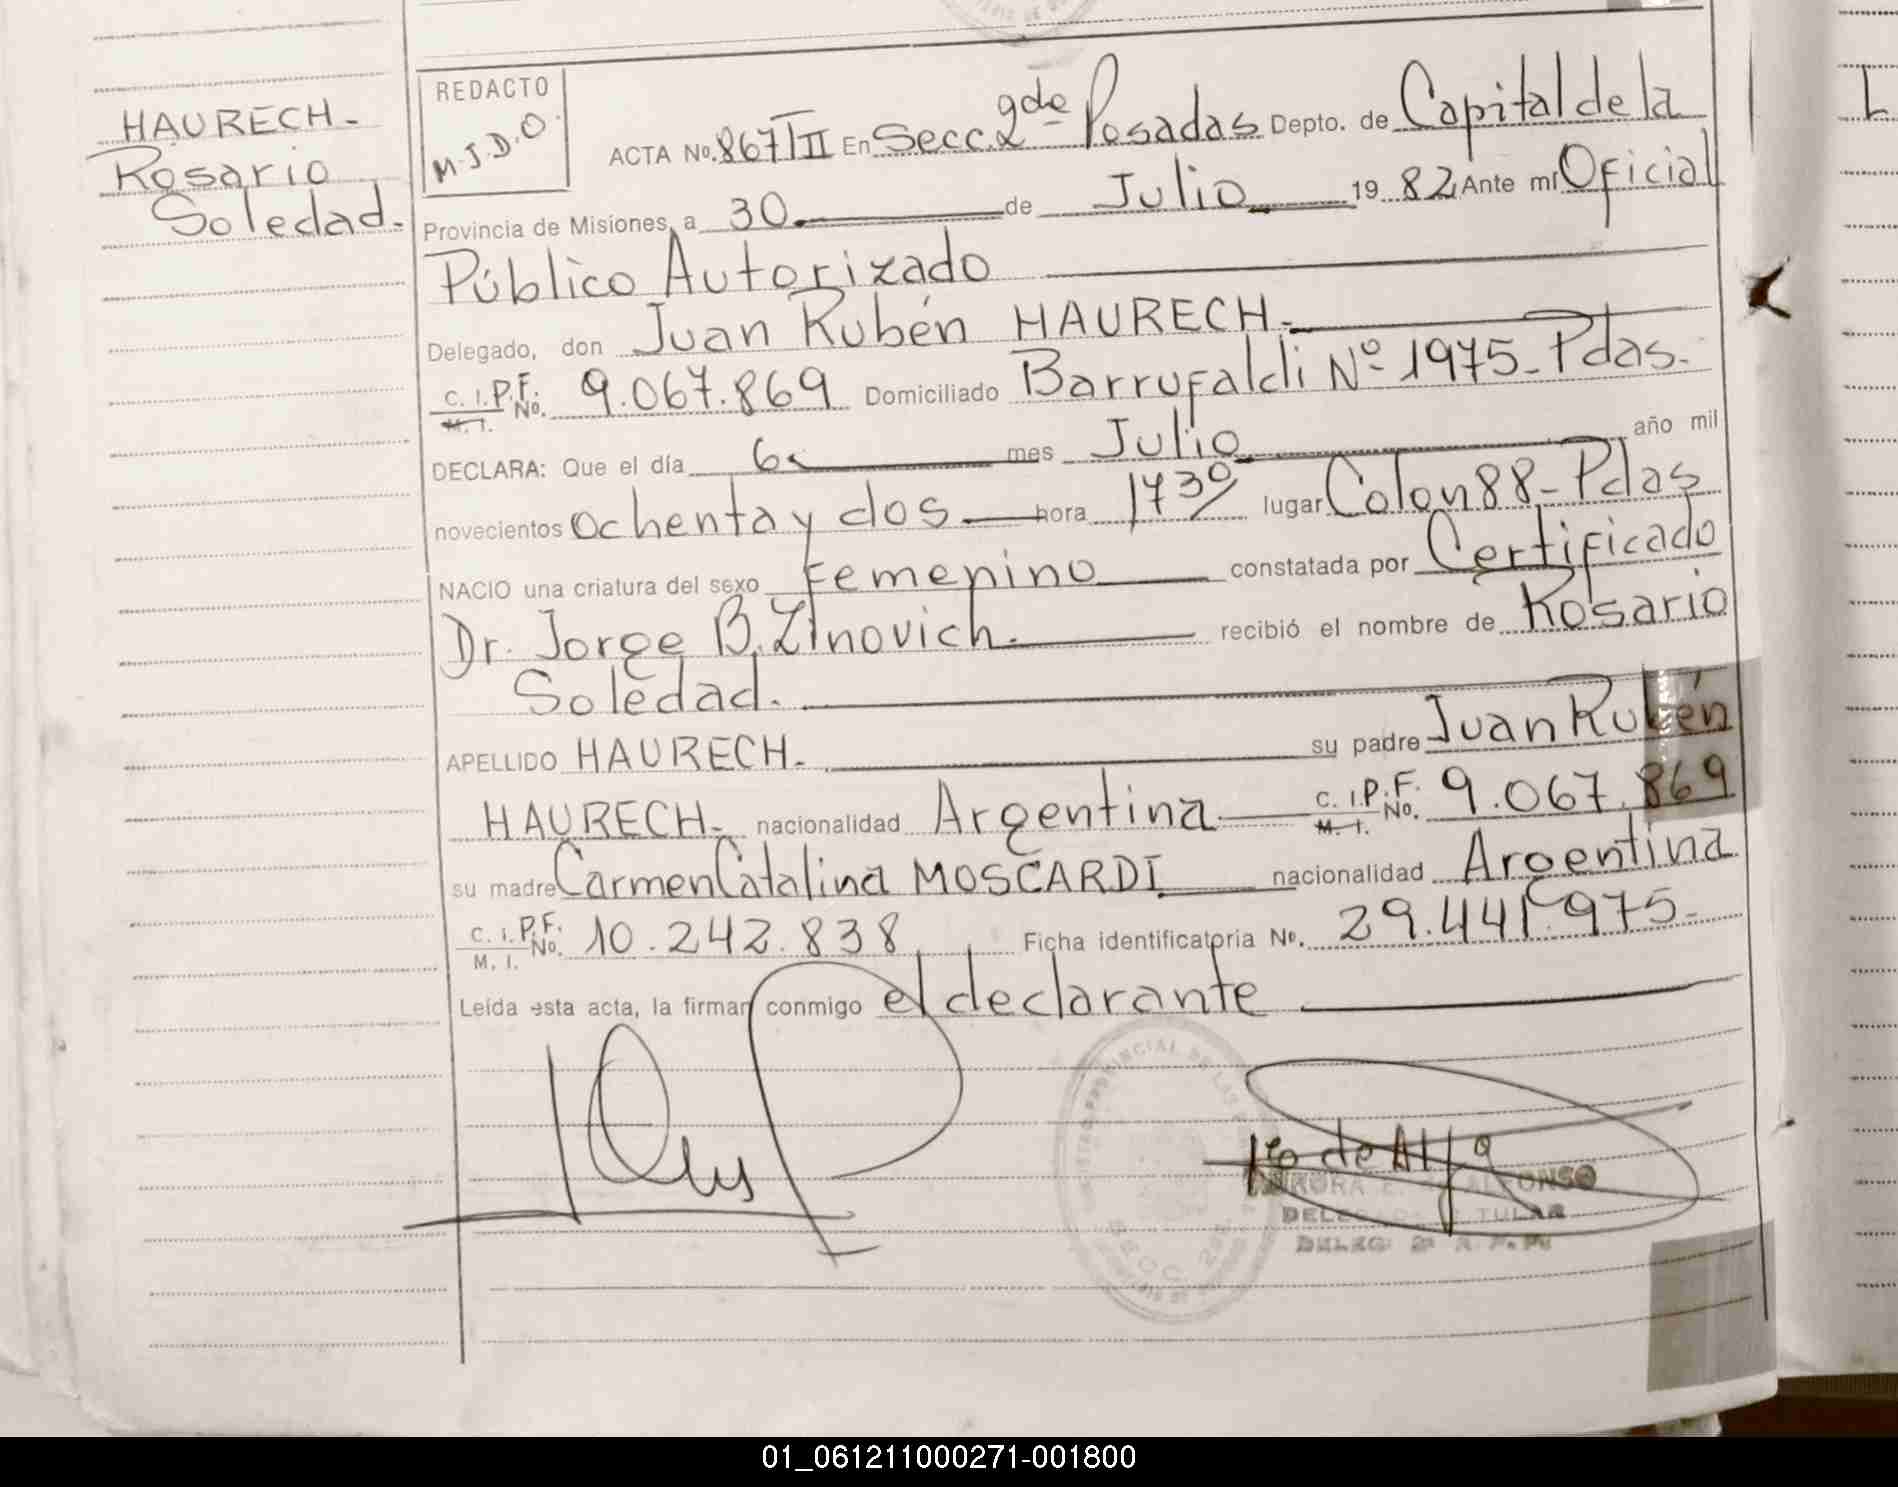 HAURECH.
Rosario
Soledad.
REDACTO
M.J.D.O.
ACTA No. 867/II En Secc. 2gda Posadas Depto. de Capital de la
Provincia de Misiones, a 30 de Julio 19 82 Ante mí Oficial
Público Autorizado
Delegado, don Juan Rubén HAURECH.
C. I. P.F. M. I. No. 9.067.869 Domiciliado Barrufaldi Nº 1975 - Pdas.
DECLARA: Que el día 6 mes Julio año mil
novecientos ochenta y dos hora 1730 lugar Colon 88 - Pdas
NACIO una criatura del sexo Femenino constatada por Certificado
Dr. Jorge B. Zinovich. recibió el nombre de Rosario
Soledad.
APELLIDO HAURECH. su padre Juan Rubén
HAURECH. nacionalidad Argentina C. I. P.F. M. I. No. 9.067.869
su madre Carmen Catalina MOSCARDI nacionalidad Argentina
C. I. P.F. M. I. No. 10.242.838 Ficha identificatoria No. 29.441.975.
Leída esta acta, la firman conmigo el declarante
PROVINCIAL DE LAS
SECC. 2da
ALFONSO
DELEGADA TITULAR
DELEG. 2a
01_061211000271-001800